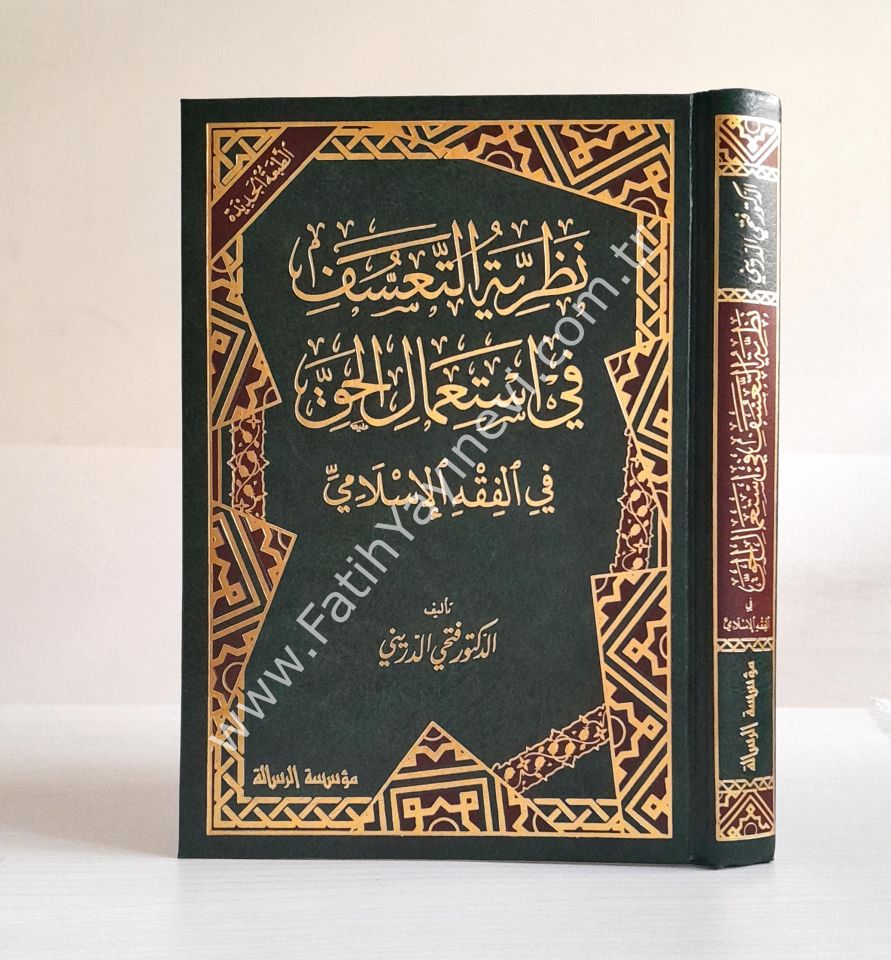 الطبعة الجديدة
نَظَرِيَّةُ التَّعَسُّفِ
فِي اسْتِعْمَالِ الحَقِّ
فِي الفِقْهِ الإِسْلَامِيِّ
تأليف
الدكتور فتحي الدريني
مؤسسة الرسالة
الدكتور فتحي الدريني
نظرية التعسف في استعمال الحق
في
الفقه الإسلامي
مؤسسة الرسالة
www.FatihYayinevi.com.tr